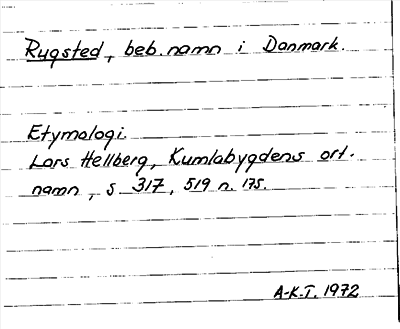 Rugsted, beb.namn i Danmark.
Etymologi.
Lars Hellberg, Kumlabygdens ort-
namn, s 317, 519 n. 175.
A-K.T. 1972